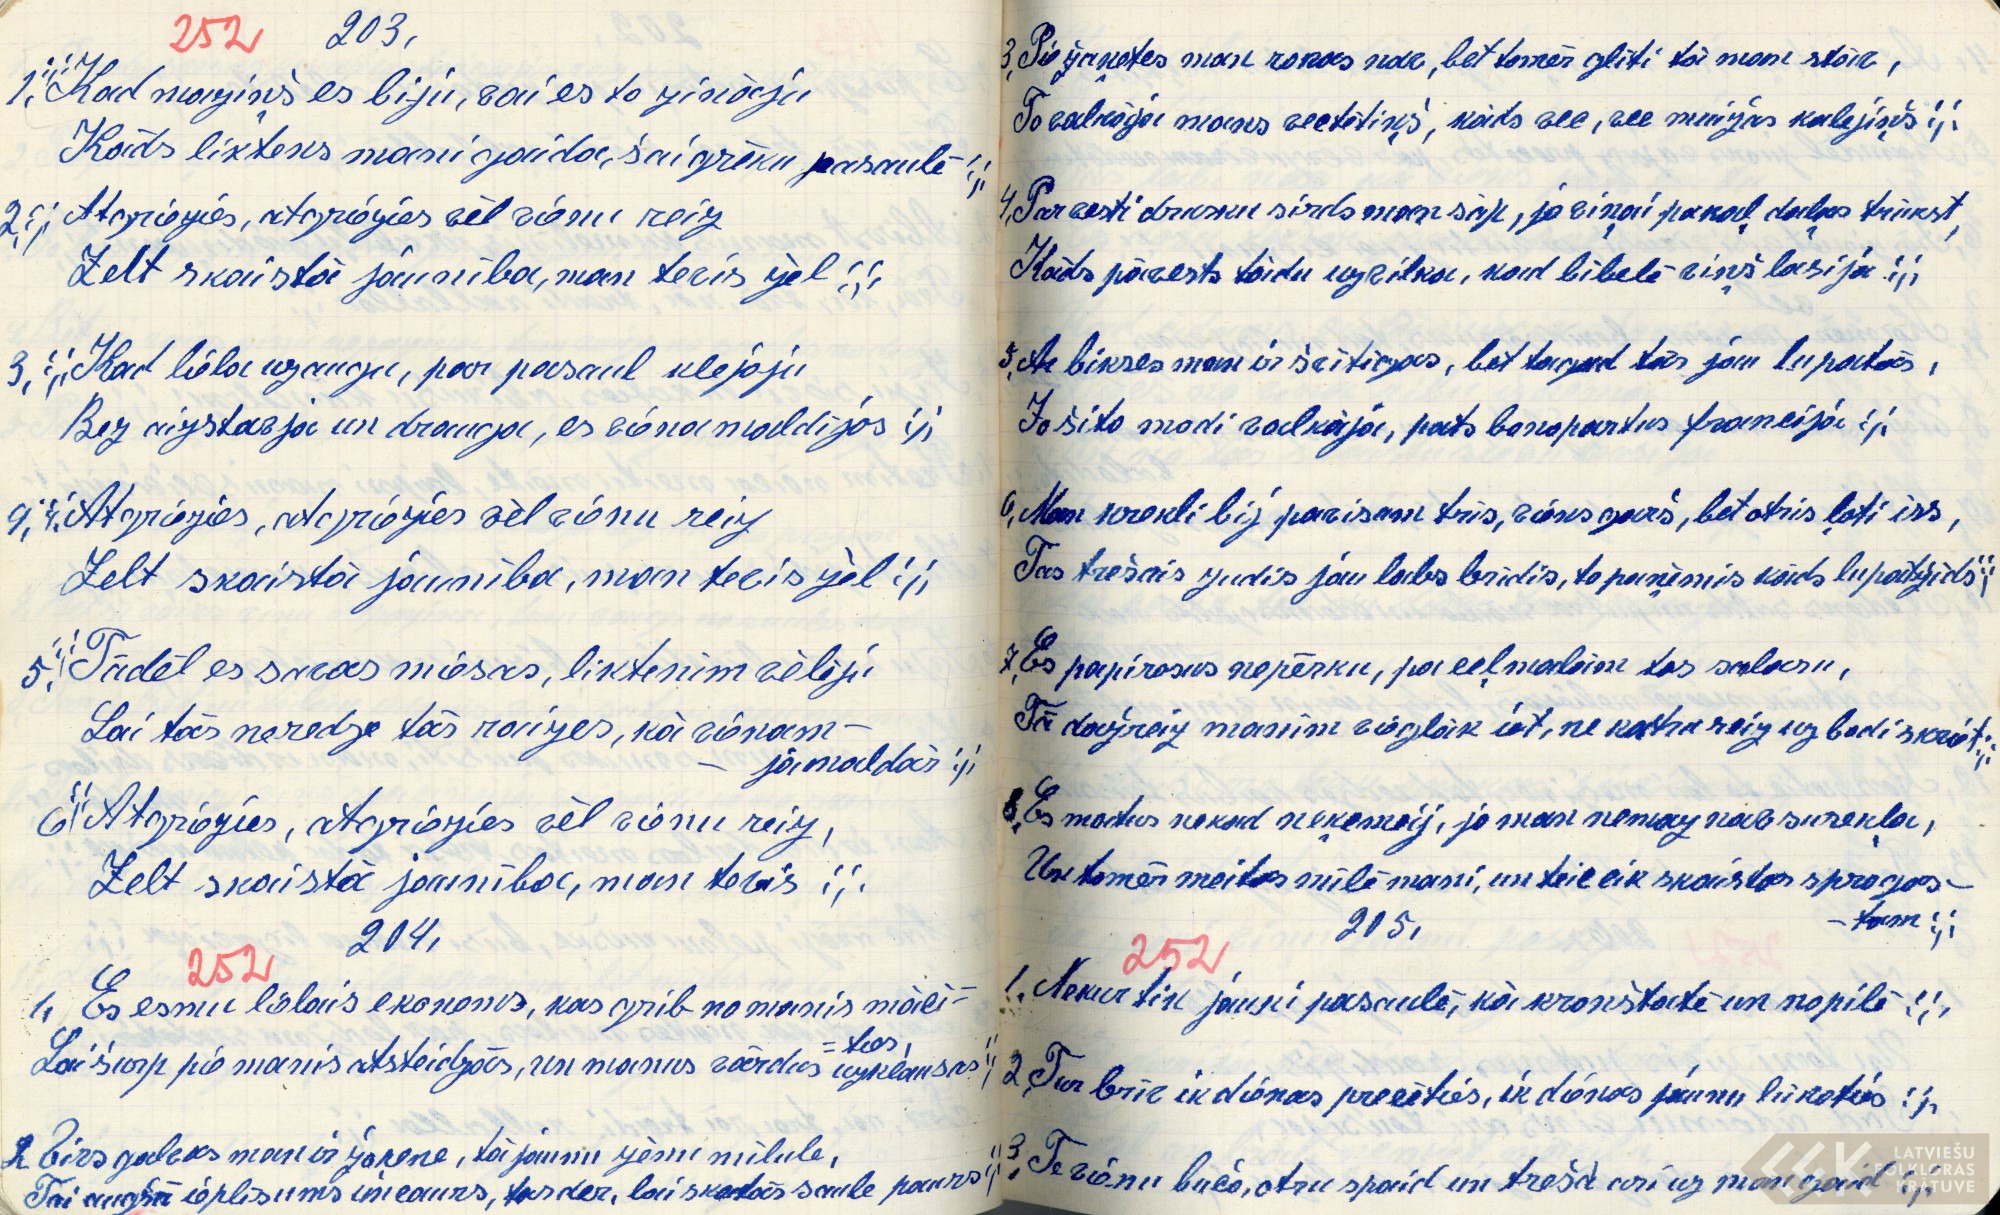 252 203,
1, ;,; Kad maziņš es biju, vai es to zināju
Kāds liktens mani gaida, šai grēku pasaulē ;,;
2, ;,; Atgriezies, atgriezies vēl vienu reiz
Zelt skaistā jaunība, man tevis žēl ;,;
3, ;,; Kad liela uzaugu, par pasaul klejoju
Bez aizstavja un drauga, es viena maldijos ;,;
4, ;,; Atgriezies, atgriezies vēl vienu reiz
Zelt skaistā jaunība, man tevis žēl ;,;
5, ;,; Tādēl es savas miesas, liktenim vēlēju
Lai tās neredze tās raizes, kā vienam –
– jāmaldās ;,;
6, ;,; Atgriezies, atgriezies vēl vienu reiz,
Zelt skaistā jaunība, man tevis ;,;
204,
252
1, Es esmu lielais ekonoms, kas grib no manis mācī–
= ties,
Lai šurp pie manis atsteidzās, un manus vārdus uzklausas ;,;
2, Virs galvas man ir žokene, tā jaunu zēnu mīlule,
Tai augšā ieplīsums iecaurs, tas der, lai skatās saule paurs ;,;
3, Pie žaketes man rokas nav, bet tomēr glīti tā man stāv,
To valkāja mans vectētiņš, kāds vec, vec muižas kalējiņš ;,;
4, Par vesti drusku sirds man sāp, jo viņai pakaļ daļas trūkst,
Kāds pāvests tādu uzvilka, kad bībelē viņš lasija ;,;
5, Ar bikses man ir švītigas, bet tagad tās jau lupatās,
Jo šito modi valkāja, pats bonopartus francijā ;,;
6, Man krekli bij pavisam trīs, viens garš, bet otris ļoti iss,
Tas trešais zudis jau labs brīdis, to paņēmis kāds lupatžīds ;,;
7, Es papirosus nepērku, pa ceļmalām tos salasu,
Tā dažreiz manim vieglāk iet, ne katru reiz uz bodi skriet ;,;
8, Es matus nekad neķemēij, jo man nemaz nav surekļa,
Un tomēr meitas mīlē mani, un teic cik skaistas sprogas –
– tam ;,;
205,
252
1, Nekur tik jauki pasaulē, kā kronštatē un nopilē ;,;
2, Tur brīv ik dienas precēties, ik dienas jaunu lūkoties ;,;
3, Te vienu bučo, otru spaid un trešā vēl uz man gaid ;,;
LATVIEŠU
FOLKLORAS
KRĀTUVE